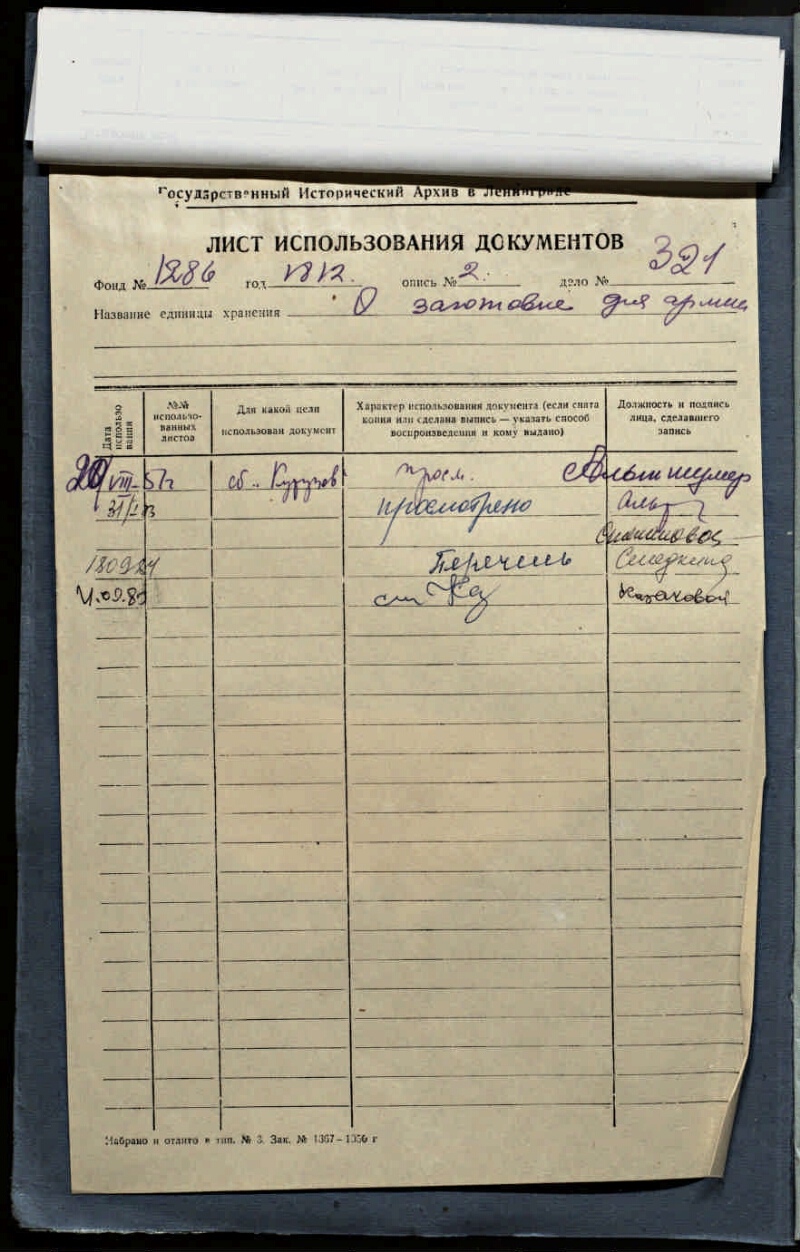 Государственный Исторический Архив в Ленинграде
ЛИСТ ИСПОЛЬЗОВАНИЯ ДОКУМЕНТОВ
Фонд № 1286 год 1812. опись № 2. дело № 321
Название единицы хранения О заготовке для армии
Дата использования
№№ использо-
ванных
листов
Для какой цели
использован документ
Характер использования документа (если снята
копия или сделана выпись — указать способ
воспроизведения и кому выдано)
Должность и подпись
лица, сделавшего
запись
VIII-57г сб. Кутузов просм. Альтшулер
просмотрено
Перечень
Казаковой
Набрано и отлито в тип. № 3. Зак. № 1367—1956 г